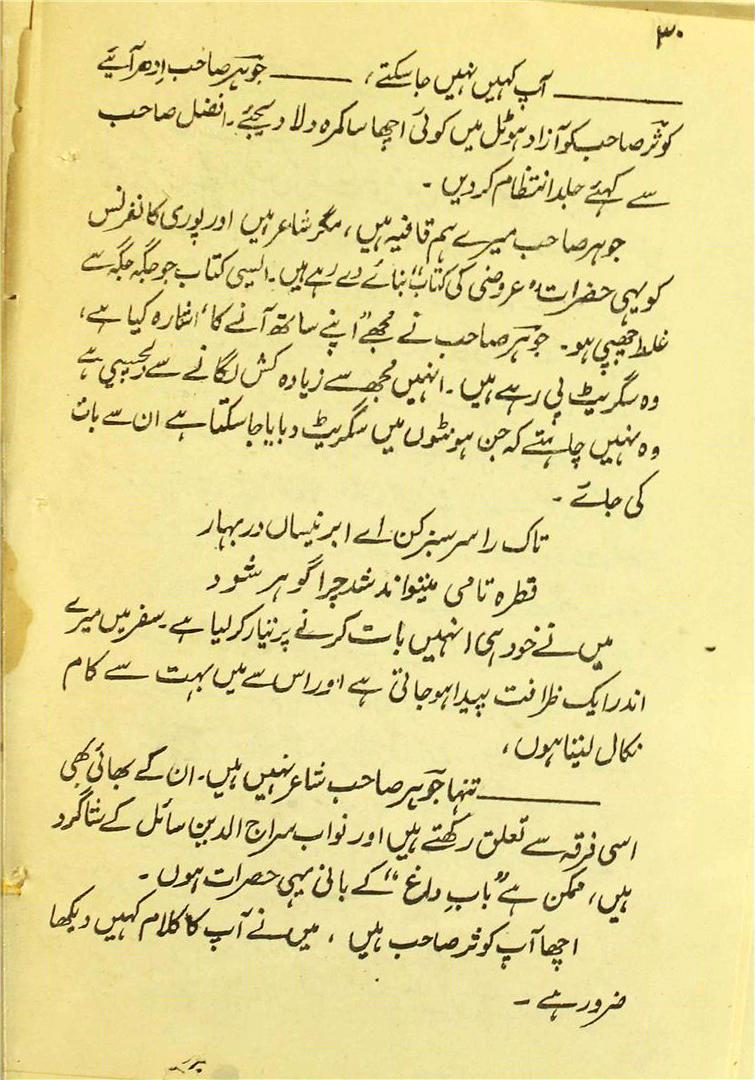 ۳۰
ــــــــــ آپ کہیں نہیں جا سکتے، ــــــــــ جوہر صاحب اِدھر آیئے
کوثر صاحب کو آزاد ہوٹل میں کوئی اچھا سا کمرہ دلا دیجئے۔ افضل صاحب
سے کہئے جلد انتظام کر دیں ۔
جوہر صاحب میرے ہم قافیہ ہیں، مگر شاعر ہیں اور پوری کانفرنس
کو یہی حضرات "عروضی کی کتاب" بنائے دے رہے ہیں۔ ایسی کتاب جو جگہ جگہ سے
غلط چھپی ہو۔ جوہر صاحب نے مجھے "اپنے ساتھ آنے کا" اشارہ کیا ہے،
وہ سگریٹ پی رہے ہیں۔ انہیں مجھ سے زیادہ کش لگانے سے دلچسپی ہے
وہ نہیں چاہتے کہ جن ہونٹوں میں سگریٹ دبایا جا سکتا ہے ان سے بات
کی جائے ۔
تاک را سرسبز کن اے ابرِ نیساں در بہار
قطرہ تا می میتواند شد چرا گوہر شود
میں نے خود ہی انہیں بات کرنے پر تیار کر لیا ہے۔ سفر میں میرے
اندر ایک ظرافت پیدا ہو جاتی ہے اور اس سے میں بہت سے کام
نکال لیتا ہوں،
ــــــــــ تنہا جوہر صاحب شاعر نہیں ہیں۔ ان کے بھائی بھی
اسی فرقہ سے تعلق رکھتے ہیں اور نواب سراج الدین سائل کے شاگرد
ہیں، ممکن ہے "بابِ داغ" کے بانی یہی حضرات ہوں ۔
اچھا آپ کوثر صاحب ہیں ، میں نے آپ کا کلام کہیں دیکھا
ضرور ہے ۔